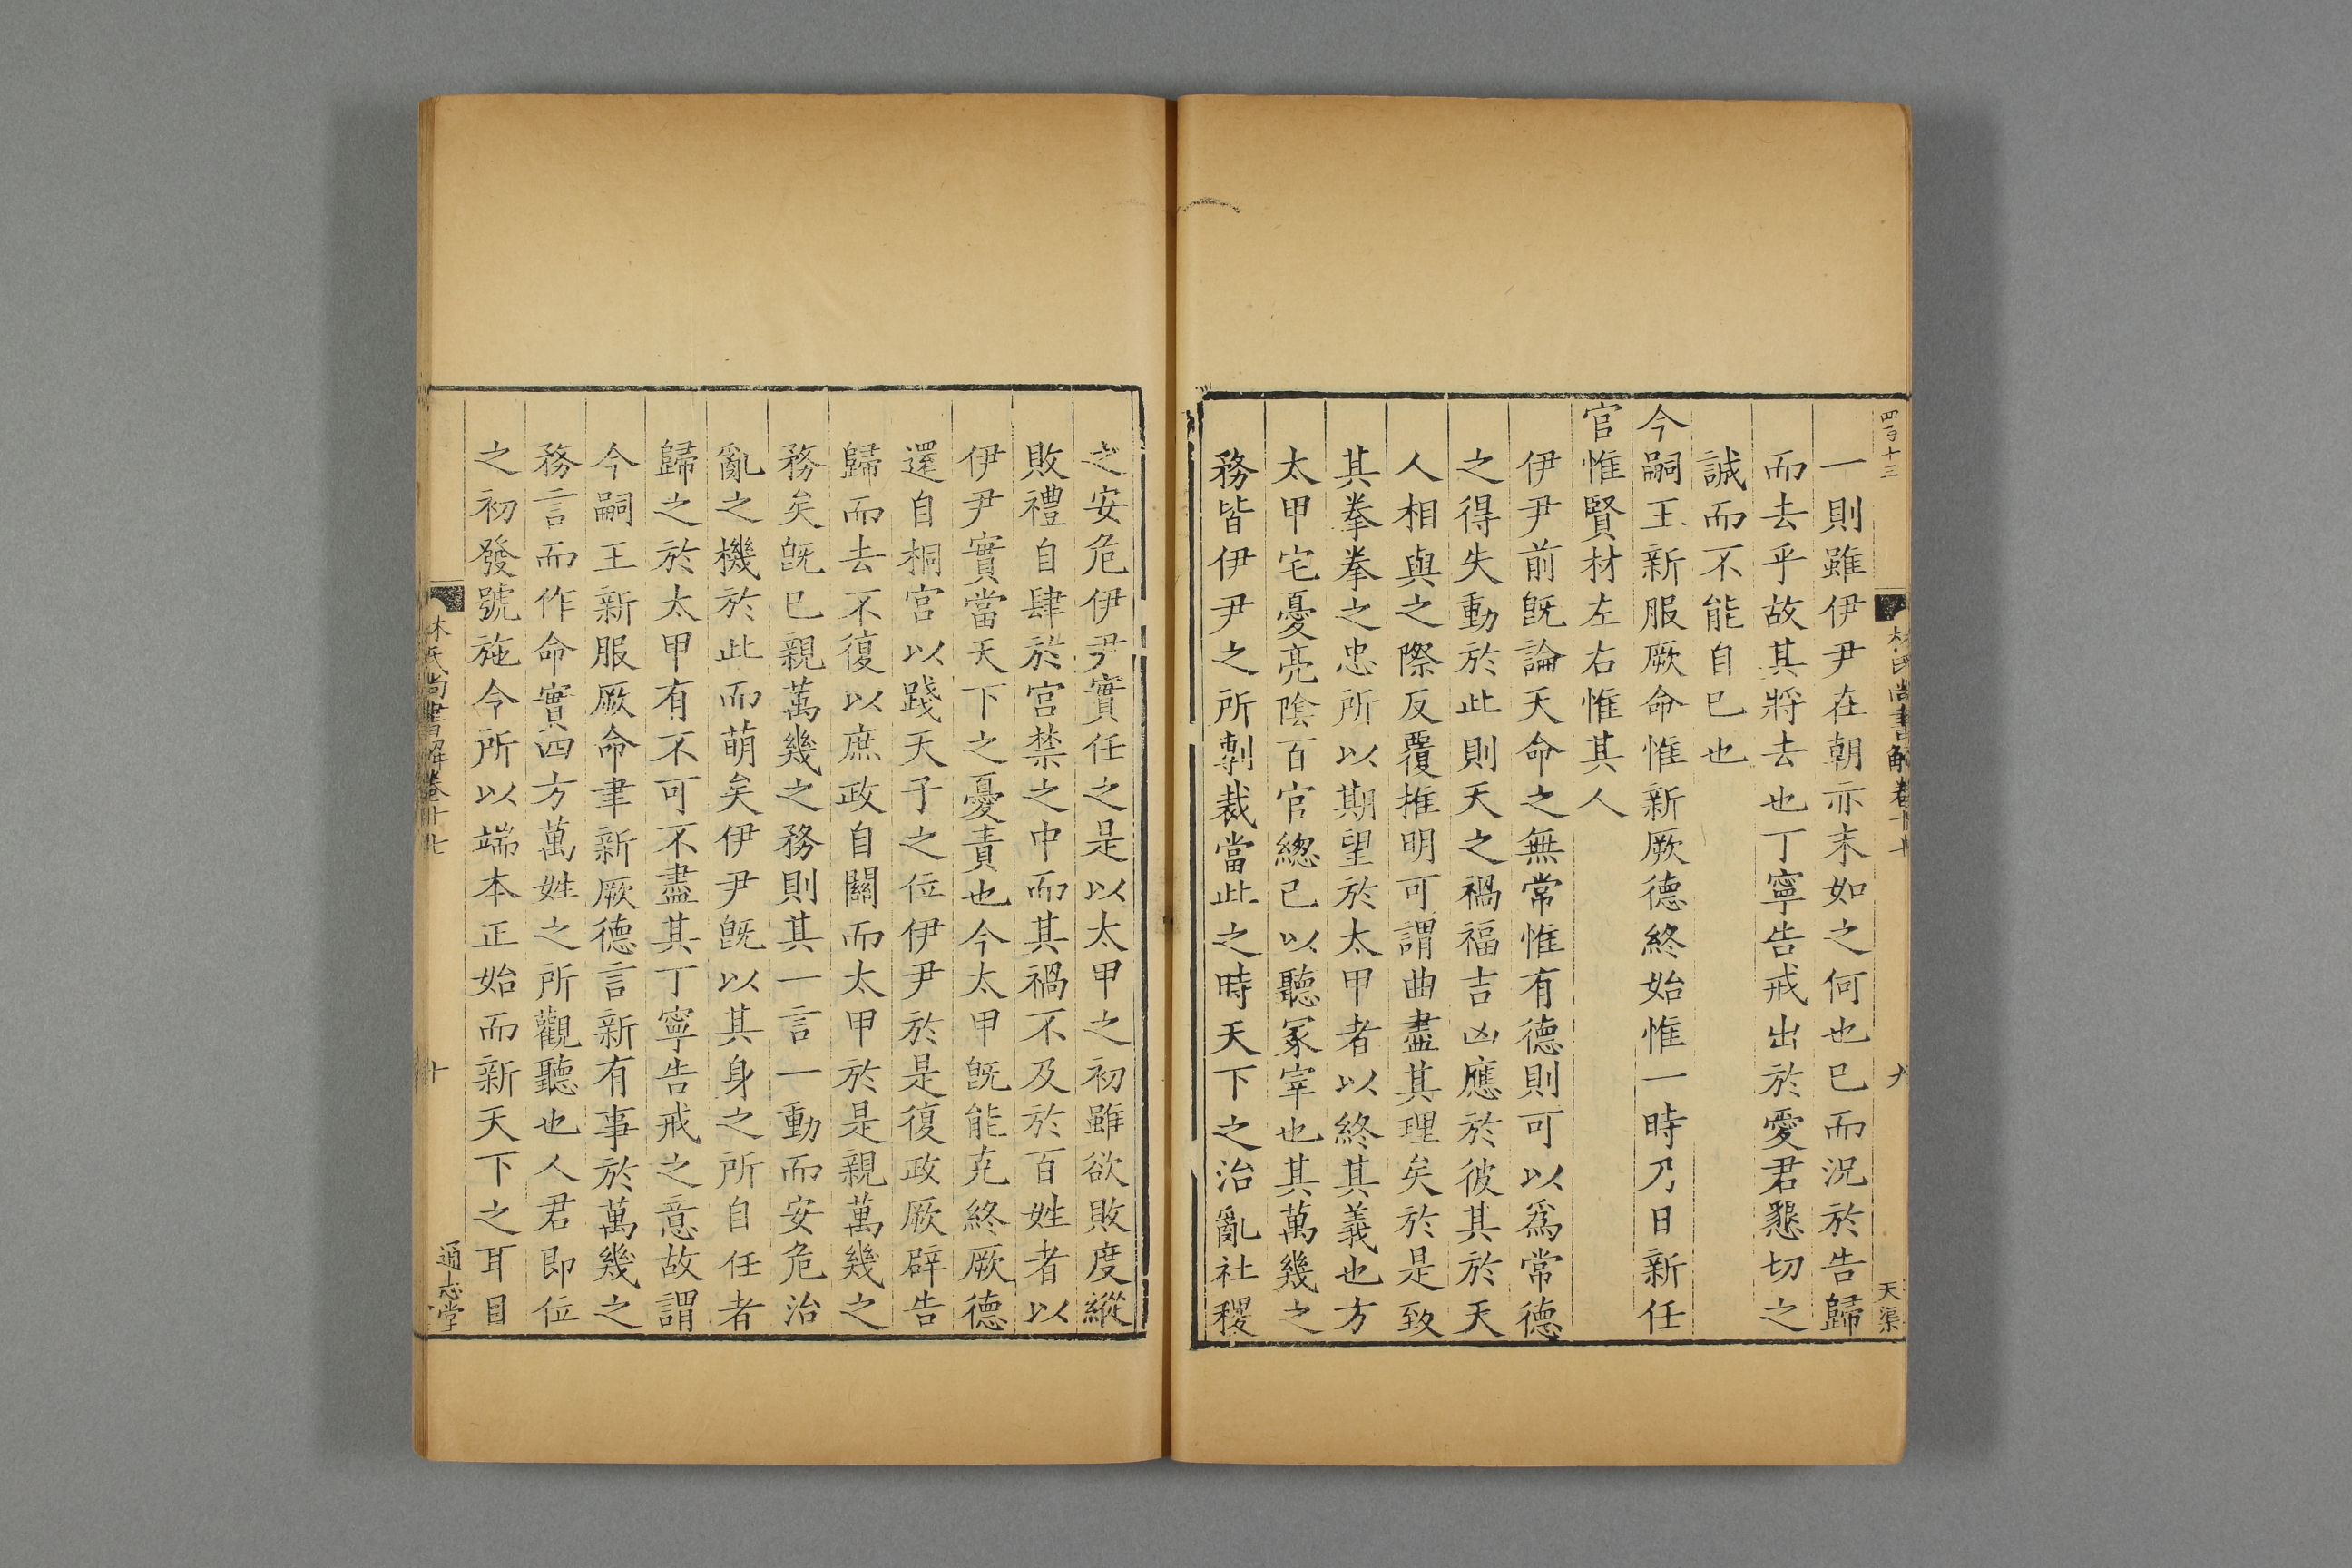 一則雖伊尹在朝亦末如之何也已而況於告歸
而去乎故其將去也丁寧告戒出於愛君懇切之
誠而不能自已也
今嗣王新服厥命惟新厥德終始惟一時乃日新任
官惟賢材左右惟其人
伊尹前旣論天命之無常惟有德則可以爲常德
之得失動於此則天之禍福吉凶應於彼其於天
人相與之際反覆推明可謂曲盡其理矣於是致
其拳拳之忠所以期望於太甲者以終其義也方
太甲宅憂亮陰百官緫己以聽冢宰也其萬幾之
務皆伊尹之所剸裁當此之時天下之治亂社稷
之安危伊尹實任之是以太甲之初雖欲敗度縱
敗禮自肆於宫禁之中而其禍不及於百姓者以
伊尹實當天下之憂責也今太甲旣能克終厥德
還自桐宫以踐天子之位伊尹於是復政厥辟告
歸而去不復以庶政自關而太甲於是親萬幾之
務矣旣已親萬幾之務則其一言一動而安危治
亂之機於此而萌矣伊尹旣以其身之所自任者
歸之於太甲有不可不盡其丁寧告戒之意故謂
今嗣王新服厥命聿新厥德言新有事於萬幾之
務言而作命實四方萬姓之所觀聽也人君即位
之初發號施令所以端本正始而新天下之耳目
林氏尚書解卷十七
十
通志堂